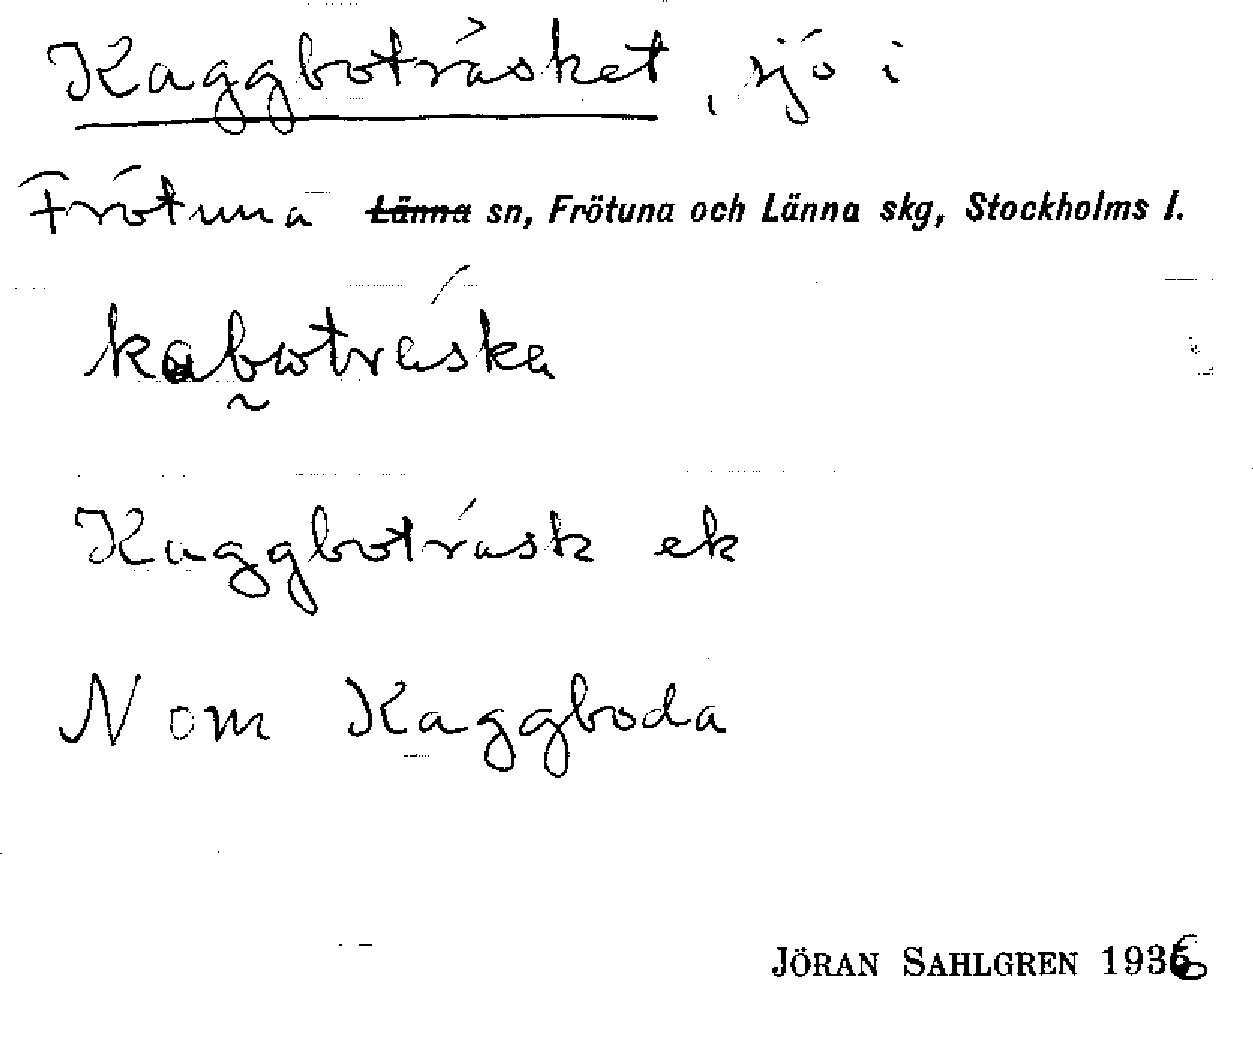 Kaggboträsket, sjö i
Frötuna Länna sn, Frötuna och Länna skg, Stockholms l.
kaboträska
Kaggboträsk ek
N om Kaggboda
JÖRAN SAHLGREN 1936